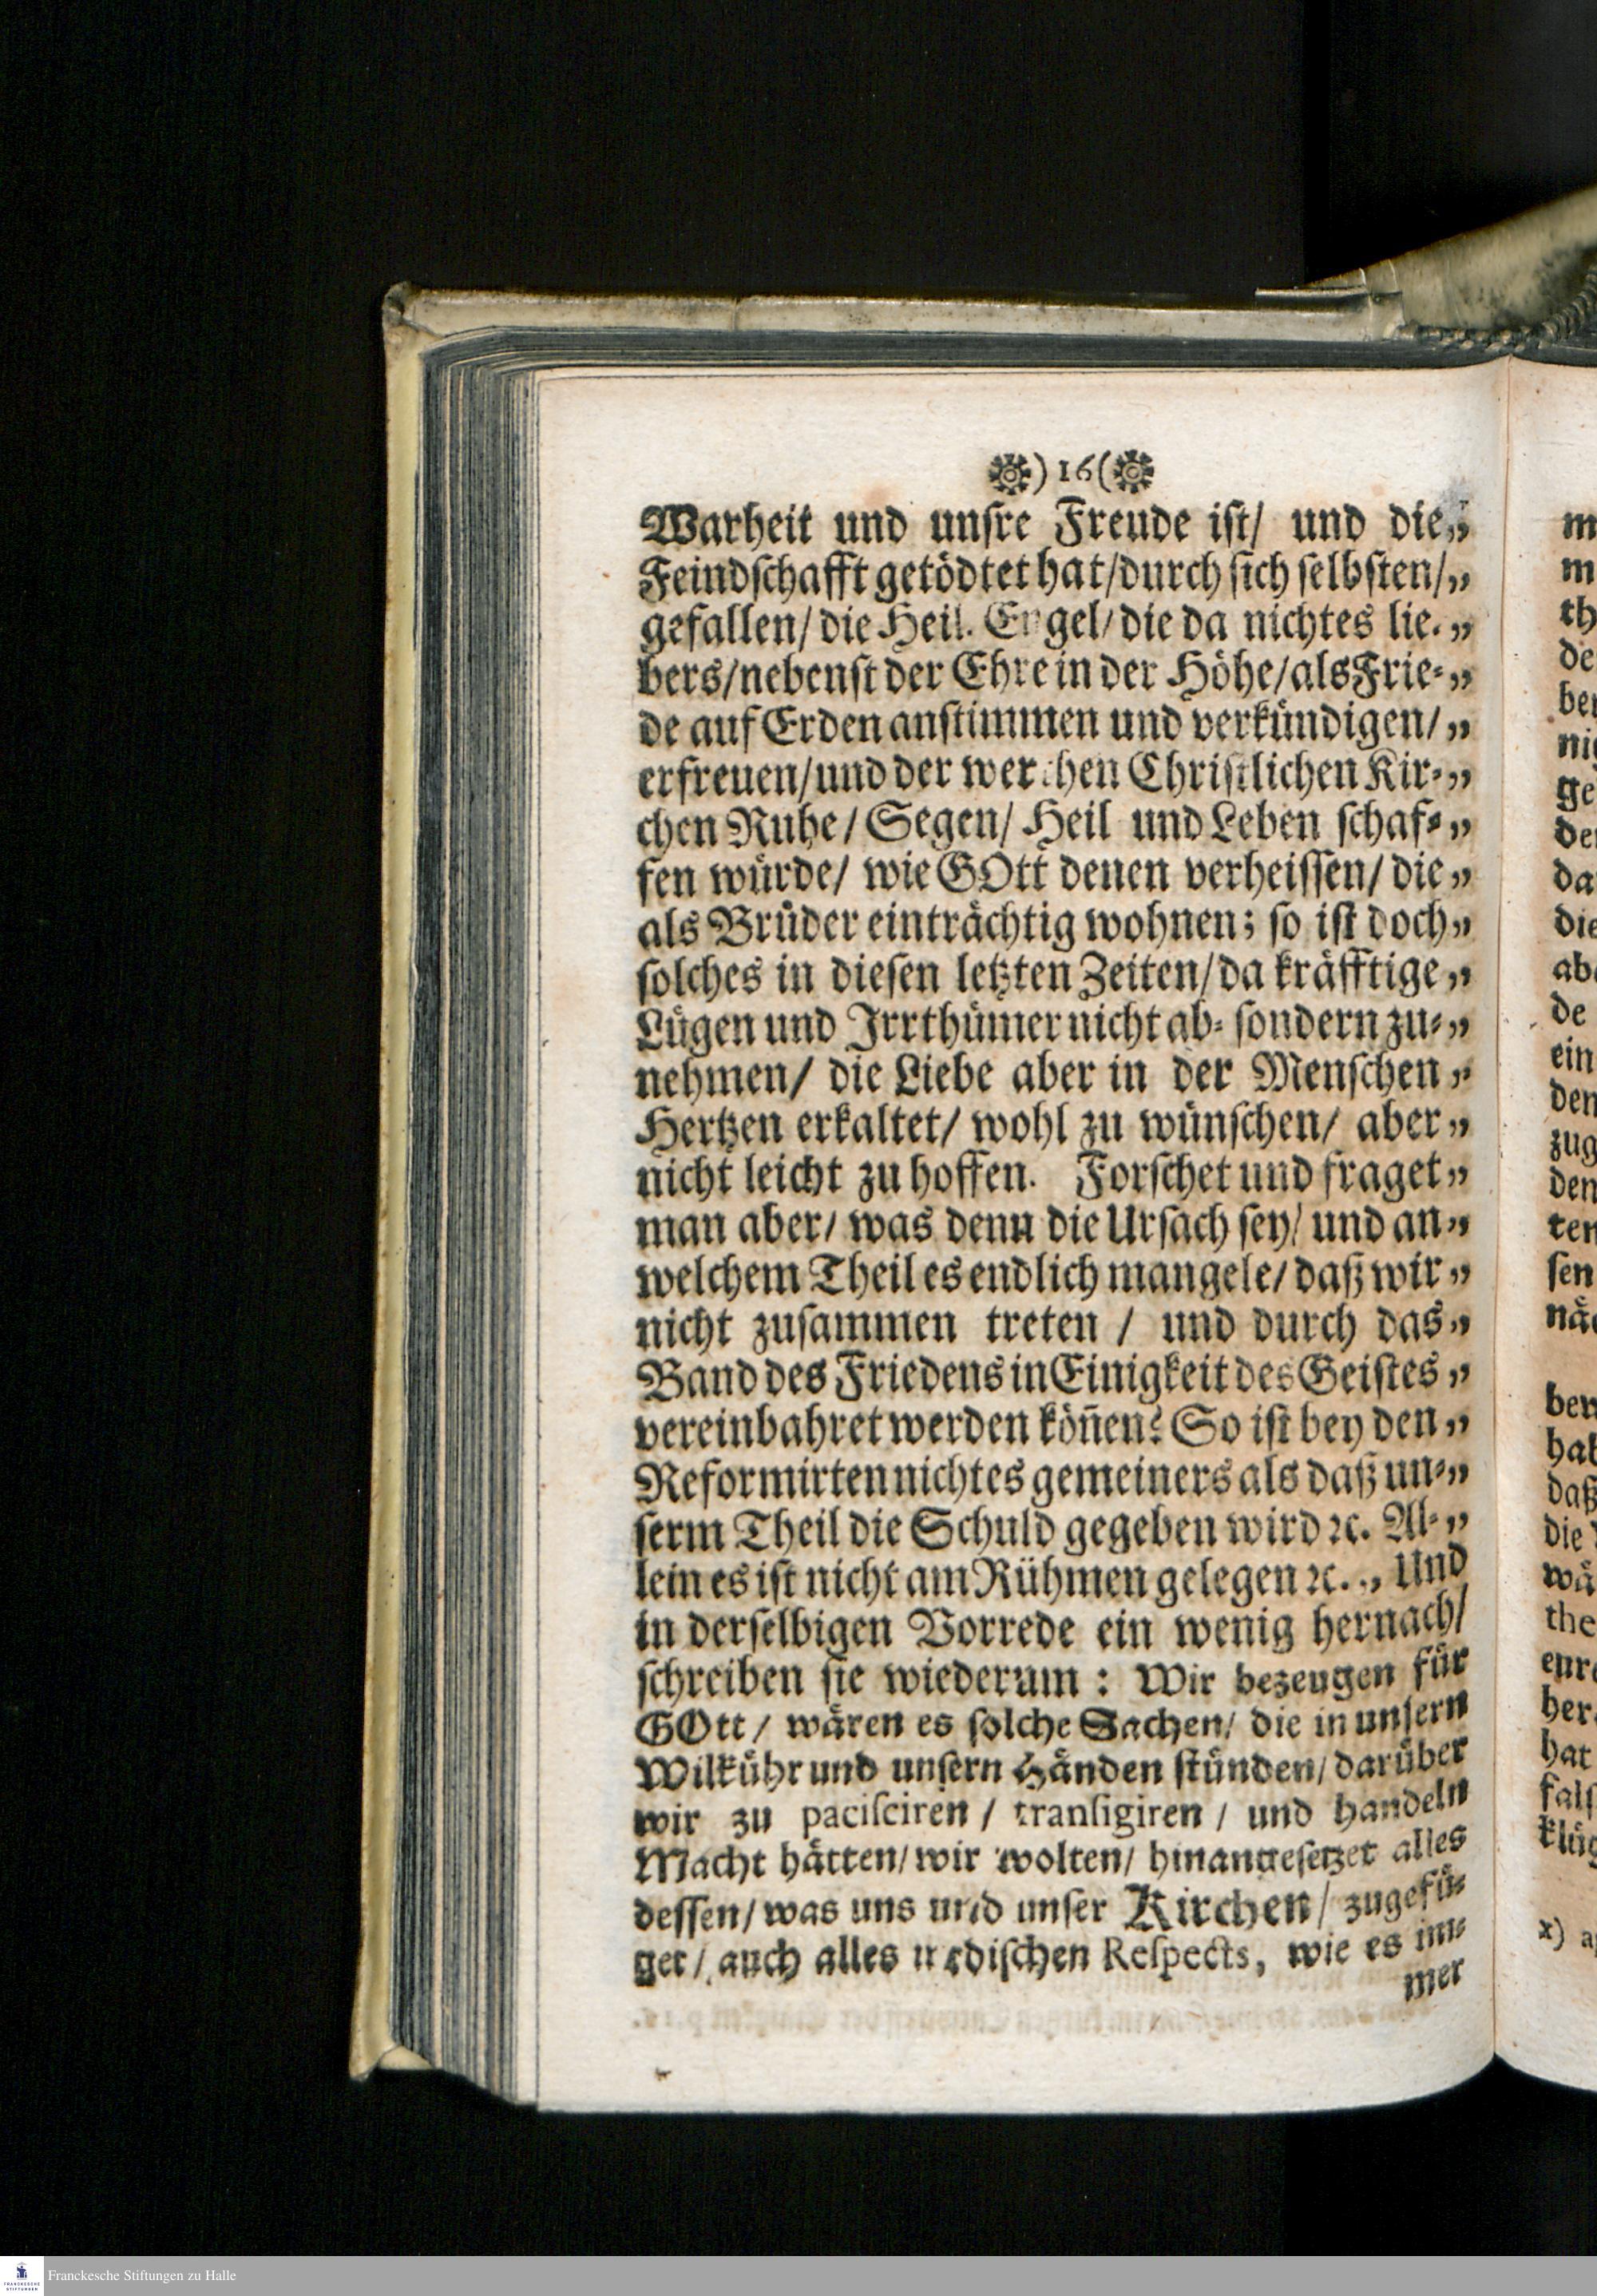 ) 16 (
Warheit und unsre Freude ist/ und die„
Feindschafft getödtet hat/durch sich selbsten/„
gefallen/ die Heil. Engel/ die da nichtes lie-„
bers/nebenst der Ehre in der Höhe/als Frie-„
de auf Erden anstimmen und verkündigen/„
erfreuen/und der werthen Christlichen Kir-„
chen Ruhe/ Segen/ Heil und Leben schaf-„
fen würde/ wie GOtt denen verheissen/ die„
als Brüder einträchtig wohnen; so ist doch„
solches in diesen letzten Zeiten/da kräfftige„
Lügen und Irrthümer nicht ab- sondern zu-„
nehmen/ die Liebe aber in der Menschen„
Hertzen erkaltet/ wohl zu wünschen/ aber„
nicht leicht zu hoffen. Forschet und fraget„
man aber/ was denn die Ursach sey/ und an„
welchem Theil es endlich mangele/ daß wir„
nicht zusammen treten / und durch das„
Band des Friedens in Einigkeit des Geistes„
vereinbahret werden köñen? So ist bey den„
Reformirten nichtes gemeiners als daß un-„
serm Theil die Schuld gegeben wird ꝛc. Al-„
lein es ist nicht am Rühmen gelegen ꝛc.„ Und
in derselbigen Vorrede ein wenig hernach/
schreiben sie wiederum : Wir bezeugen für
GOtt/ wären es solche Sachen/ die in unsern
Wilkühr und unsern Händen stünden/ darüber
wir zu pacisciren / transigiren / und handeln
Macht hätten/ wir wolten/ hinangesetzet alles
dessen/ was uns und unser Kirchen/ zugefü-
get/ auch alles irrdischen Respects, wie es im-
mer
m
m
th
de
ber
nig
ge
der
da
die
abe
de
ein
den
zug
den
ten
sen
näc
ben
hab
daß
die
wä
the
eure
her
hat
fals
klüg
x) a
Franckesche Stiftungen zu Halle
FRANCKESCHE
STIFTUNGEN